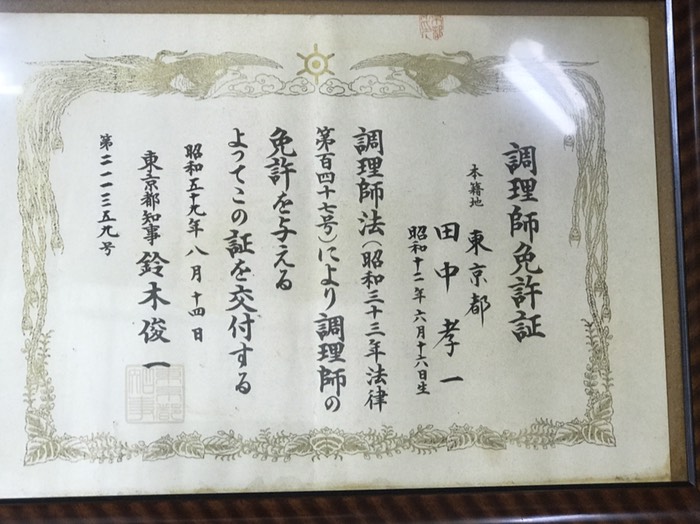 調理師免許証
本籍地 東京都
田中孝一
昭和十二年六月十六日生
調理師法(昭和三十三年法律
第百四十七号)により調理師の
免許を与える
よってこの証を交付する
昭和五十九年八月十四日
東京都知事 鈴木俊一
第二一一三五九号